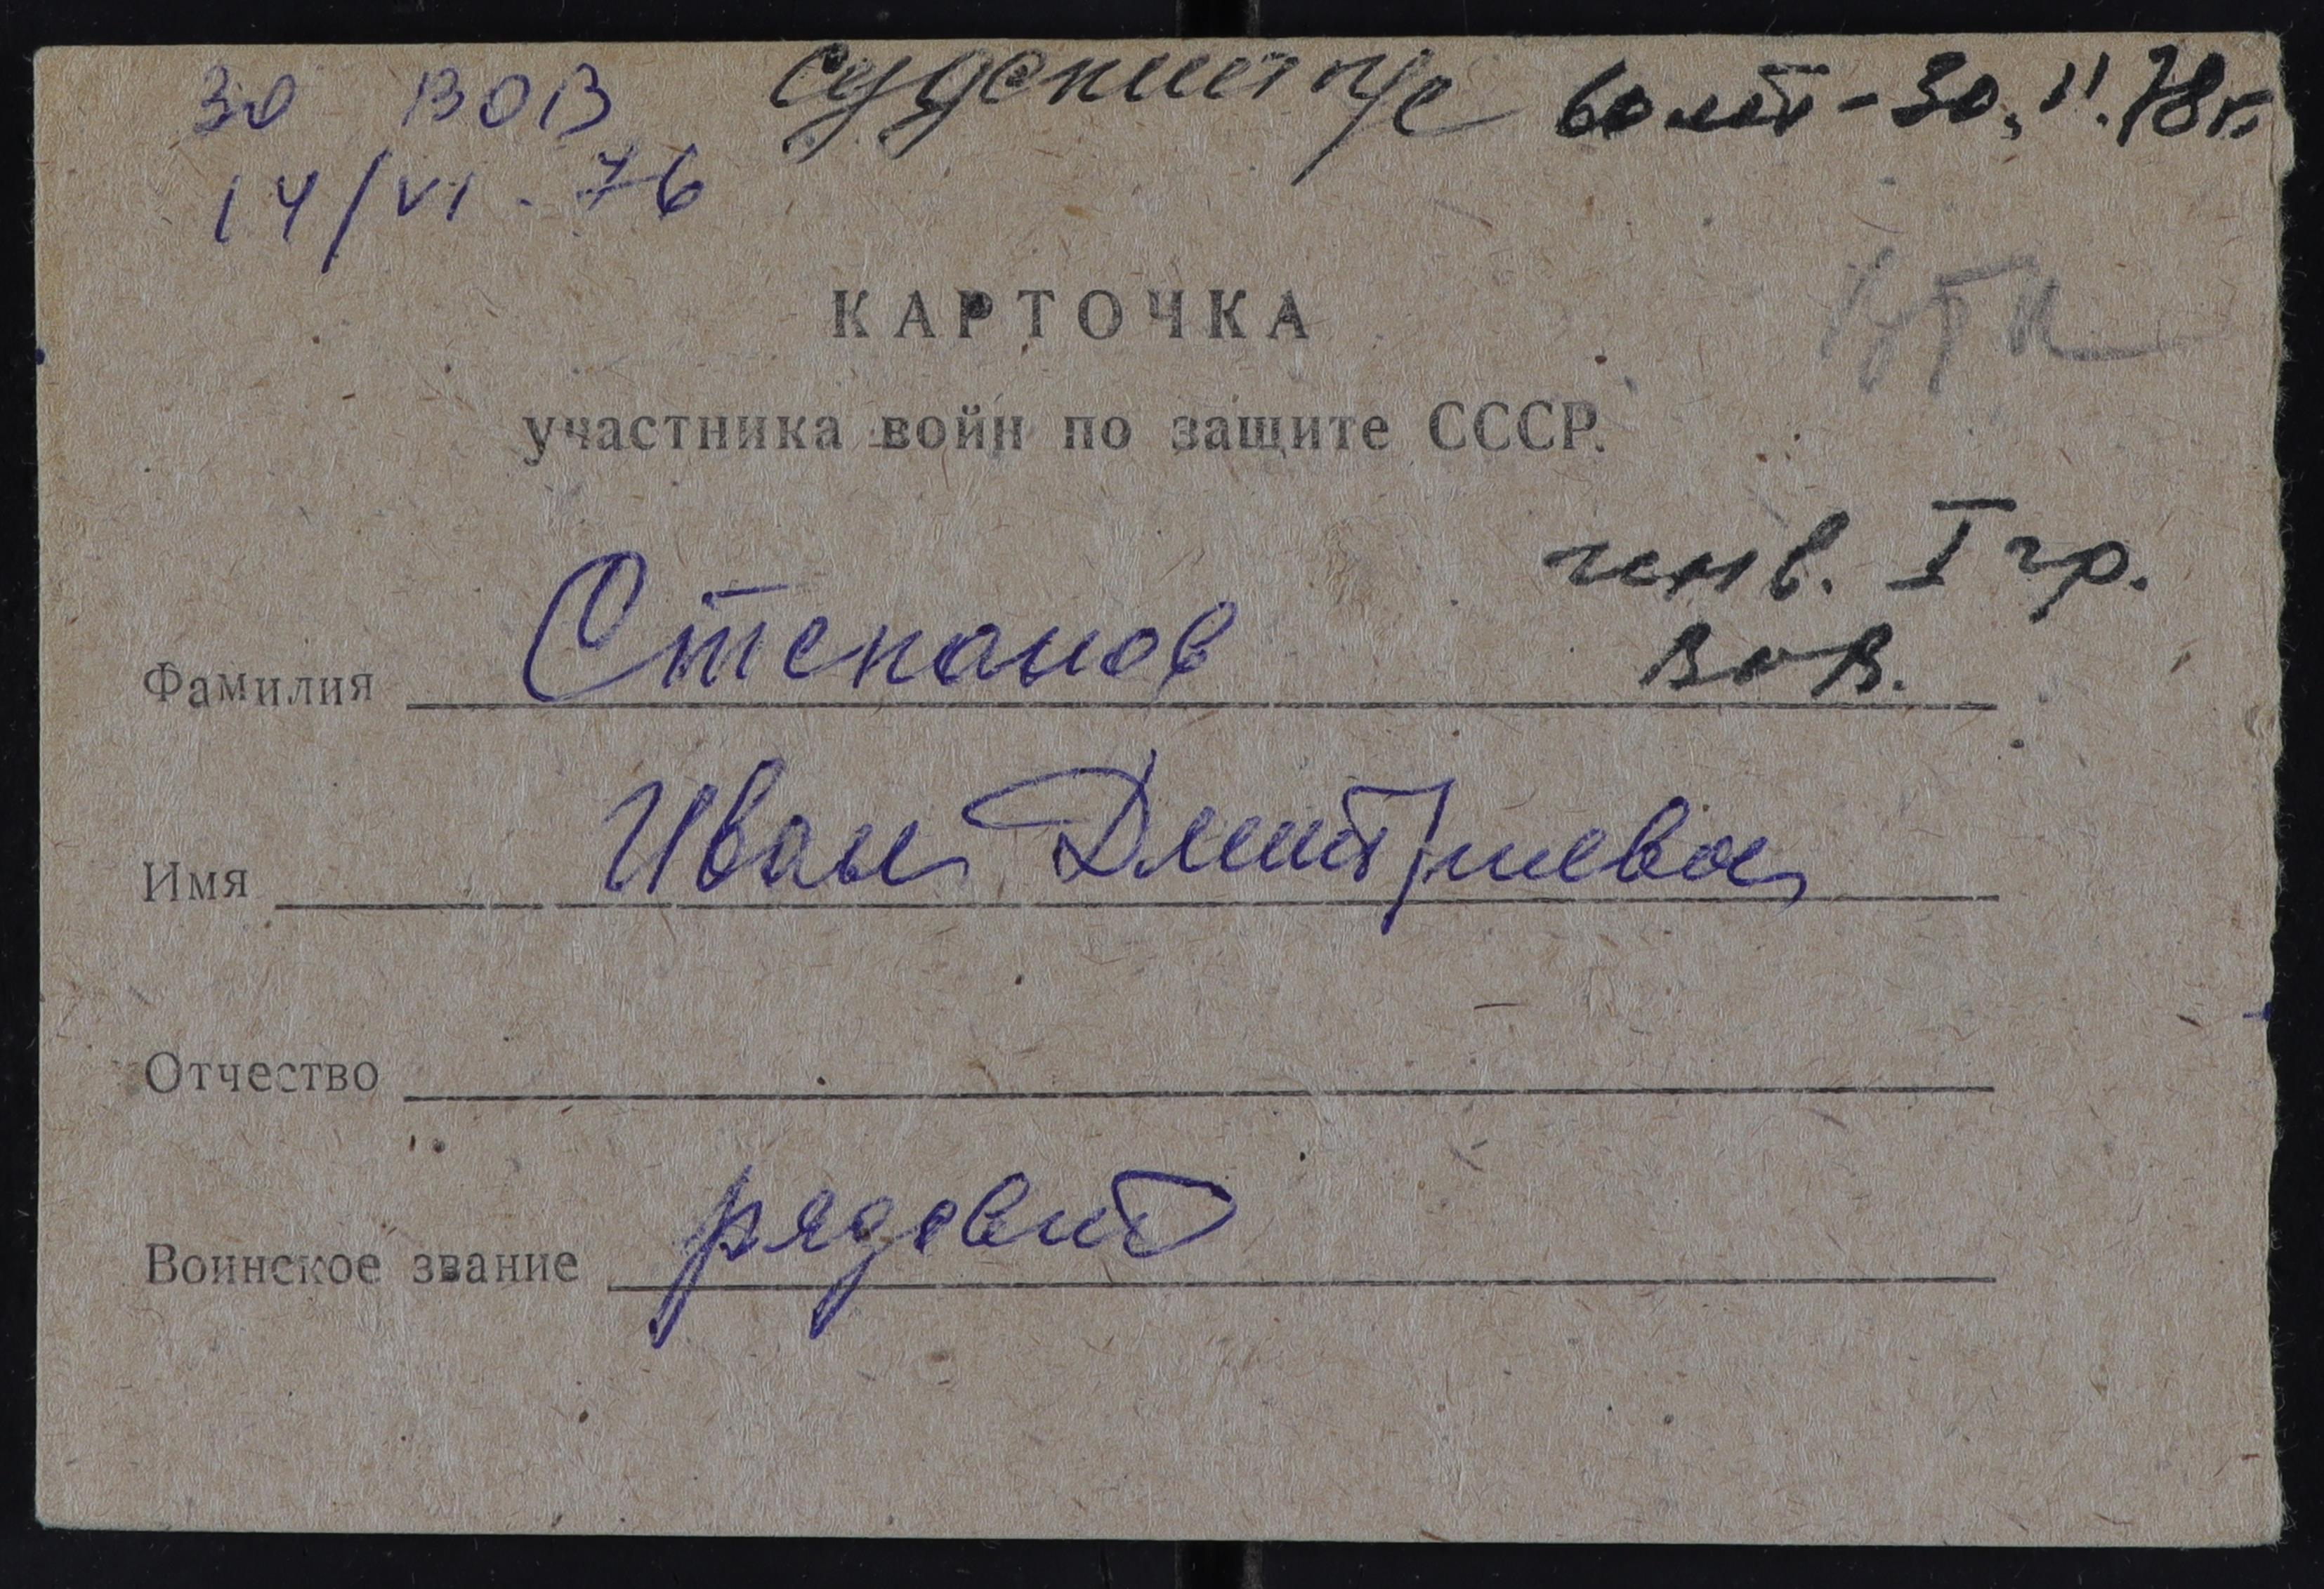 30 ВОВ
14/VI. 76
60 лет - 30. II. 78 г.
КАРТОЧКА
участника войн по защите СССР.
инв. I гр.
ВОВ.
Фамилия Степанов
Имя Иван Дмитриевич
Отчество
Воинское звание рядовой